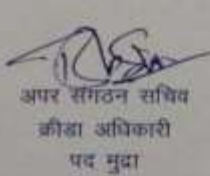 अपर संगठन सचिव
क्रीडा अधिकारी
पद मुद्रा